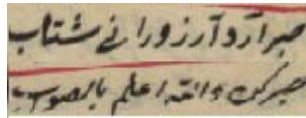 صبر آرد آرزو را نے شتاب
صبر کن والله اعلم بالصواب